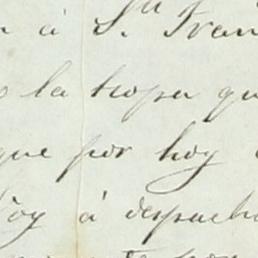 á S.ⁿ Fran
la tropa qu
que por hoy
Voy á despacha